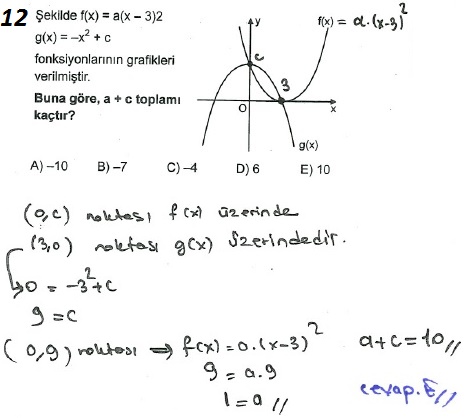 12 Şekilde f(x) = a(x – 3)2
g(x) = –x² + c
fonksiyonlarının grafikleri
verilmiştir.
Buna göre, a + c toplamı
kaçtır?
y
f(x) = a.(x-3)²
c
3
O
x
g(x)
A) –10 B) –7 C) –4 D) 6 E) 10
(0,c) noktası f(x) üzerinde
(3,0) noktası g(x) üzerindedir.
0 = -3²+c
9 = c
(0,9) noktası ⇒ f(x) = a.(x-3)²
9 = a.9
1 = a //
a+c = 10 //
cevap. E //